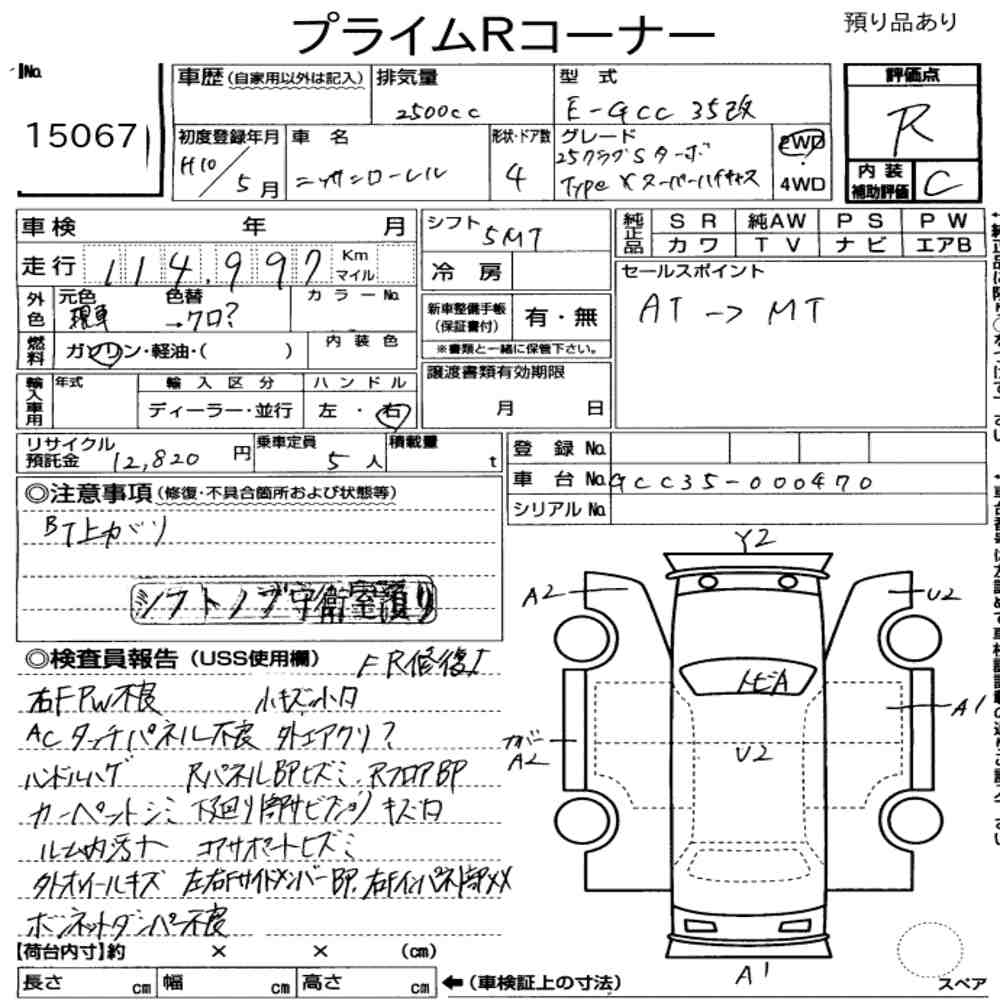 プライムRコーナー
預り品あり
No.
15067
車歴 (自家用以外は記入)
排気量
2500cc
型式
E-GCC35改
評価点
R
初度登録年月
H10/5月
車名
ニッサンローレル
形状・ドア数
4
グレード
25クラブSターボ
Type X スーパーハイキャス
2WD
4WD
内装
補助評価
C
車検 年 月
走行 114,997 Km
マイル
シフト
5MT
冷房
純正品
SR 純AW PS PW
カワ TV ナビ エアB
セールスポイント
AT→MT
外色
元色
現車
色替
→クロ?
カラーNo.
新車整備手帳
(保証書付)
有・無
※書類と一緒に保管下さい。
燃料
ガソリン・軽油・( )
内装色
輸入車用
年式
輸入区分
ディーラー・並行
ハンドル
左・右
譲渡書類有効期限
月 日
リサイクル
預託金 12,820円
乗車定員
5人
積載量
t
登録No.
車台No. GCC35-000470
シリアルNo.
◎注意事項 (修復・不具合箇所および状態等)
BT上がり
シフトノブ守衛室預り
◎検査員報告 (USS使用欄) FR修復エ
右FPW不良 小キズ小凹
ACタッチパネル不良 外エアクリ?
ハンドルハゲ RパネルBPヒズミ、RフロアBP
カーペットシミ 下廻り部サビ キズ凹
ルーム内汚れ コアサポートヒズミ
外ホイールキズ 左右FサイドメンバーBP、右Fインパネ部メメ
ボンネットダンパー不良
【荷台内寸】約 × × (cm)
長さ cm 幅 cm 高さ cm
←(車検証上の寸法)
Y2
A2
U2
トビA
A1
ガバ
A2
U2
A1
スペア